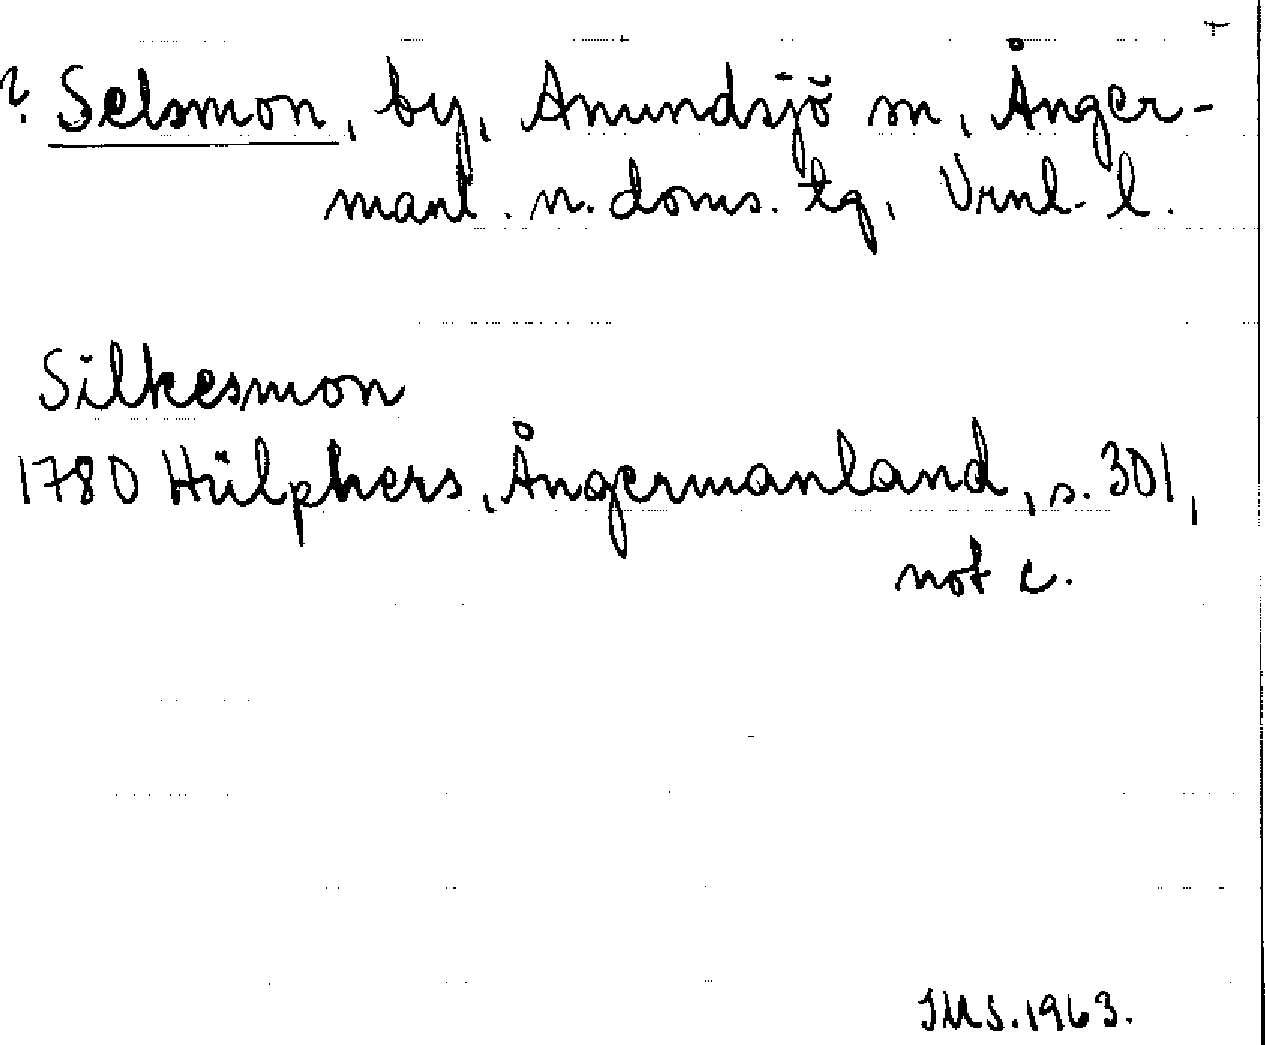 ? Selsmon, by, Anundsjö sn, Ånger-
manl. n. doms. tg, Vrnl. l.
Silkesmon
1780 Hülphers, Ångermanland, s. 301,
not c.
JMS. 1963.